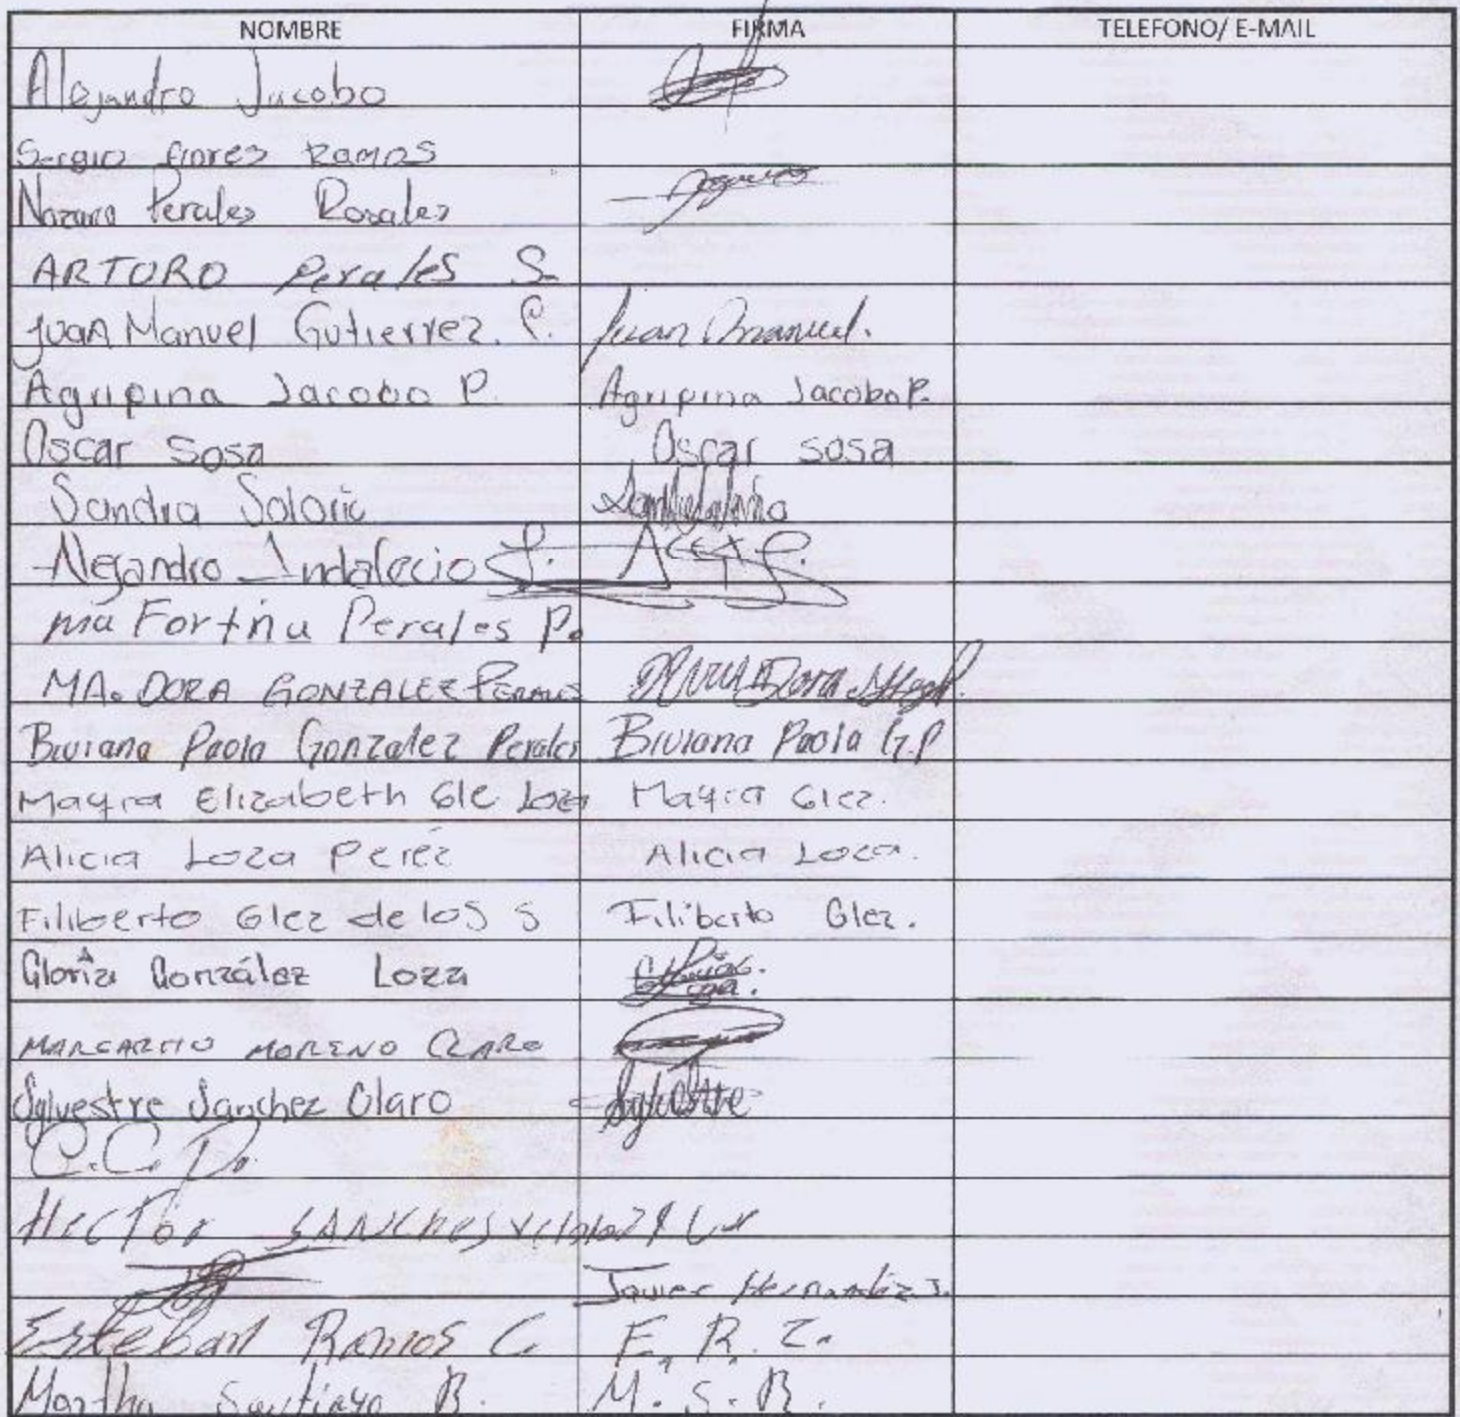 NOMBRE FIRMA TELEFONO/ E-MAIL
Alejandro Jacobo
Sergio flores Ramos
Nazario Perales Rosales
ARTURO Perales S.
Juan Manuel Gutierrez. P. Juan Manuel.
Agripina Jacobo P. Agripina Jacobo P.
Oscar Sosa Oscar sosa
Sandra Solorio
Alejandro Indalecio
ma Perales P.
MA. DORA GONZALEZ PERALES
Biviana Paola Gonzalez Perales Biviana Paola G.P
Mayra Elizabeth Gle Loza Mayra Glez.
Alicia Loza Perez Alicia Loza.
Filiberto Glez de los S Filiberto Glez.
Gloria González Loza
MARGARITO MORENO CLARO
Sylvestre Sanchez Claro Sylvestre
C.C.
HECTOR SANCHES
Javier Hernandez J.
Esteban Ramos C. E. R. C.
Martha Santiago B. M. S. B.